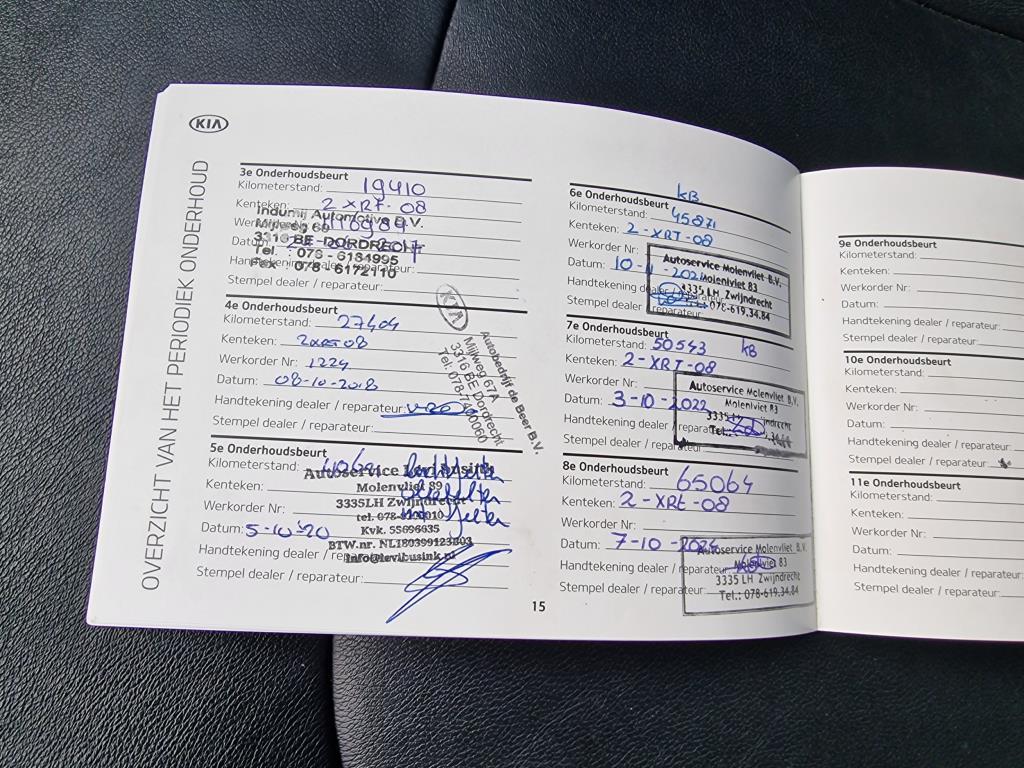 KIA
OVERZICHT VAN HET PERIODIEK ONDERHOUD
3e Onderhoudsbeurt
Kilometerstand: 19410
Kenteken: 2 XRT-08
Indumij Automotive B.V.
Mijlweg 69
3316 BE DORDRECHT
Tel. : 078 - 6184995
Fax : 078 - 6172110
Datum:
Handtekening dealer / reparateur:
Stempel dealer / reparateur:
4e Onderhoudsbeurt
Kilometerstand: 27404
Kenteken: 2XRT08
Werkorder Nr: 1224
Datum: 08-10-2018
Handtekening dealer / reparateur:
Stempel dealer / reparateur:
KIA
Autobedrijf de Beer B.V.
Mijlweg 67A
3316 BE Dordrecht
Tel: 078-7400060
5e Onderhoudsbeurt
Kilometerstand:
Kenteken:
Werkorder Nr:
Datum: 5-10-'20
Handtekening dealer / reparateur:
Stempel dealer / reparateur:
Autoservice
Molenvliet 89
3335LH Zwijndrecht
Kvk. 55696635
BTW.nr.
info@levibusink.nl
15
6e Onderhoudsbeurt
KB
Kilometerstand: 45871
Kenteken: 2-XRT-08
Werkorder Nr:
Datum: 10-11-2021
Handtekening dealer / reparateur:
Stempel dealer / reparateur:
Autoservice Molenvliet B.V.
Molenvliet 83
3335 LH Zwijndrecht
078-619.34.84
7e Onderhoudsbeurt
Kilometerstand: 50543 KB
Kenteken: 2-XRT-08
Werkorder Nr:
Datum: 3-10-2022
Handtekening dealer / reparateur:
Stempel dealer / reparateur:
Autoservice Molenvliet B.V.
Molenvliet 83
3335 LH Zwijndrecht
Tel.:
8e Onderhoudsbeurt
Kilometerstand: 65064
Kenteken: 2-XRT-08
Werkorder Nr:
Datum: 7-10-2024
Handtekening dealer / reparateur:
Stempel dealer / reparateur:
Autoservice Molenvliet B.V.
Molenvliet 83
3335 LH Zwijndrecht
Tel.: 078-619.34.84
9e Onderhoudsbeurt
Kilometerstand:
Kenteken:
Werkorder Nr:
Datum:
Handtekening dealer / reparateur:
Stempel dealer / reparateur:
10e Onderhoudsbeurt
Kilometerstand:
Kenteken:
Werkorder Nr:
Datum:
Handtekening dealer / reparateur:
Stempel dealer / reparateur:
11e Onderhoudsbeurt
Kilometerstand:
Kenteken:
Werkorder Nr:
Datum:
Handtekening dealer / reparateur:
Stempel dealer / reparateur: